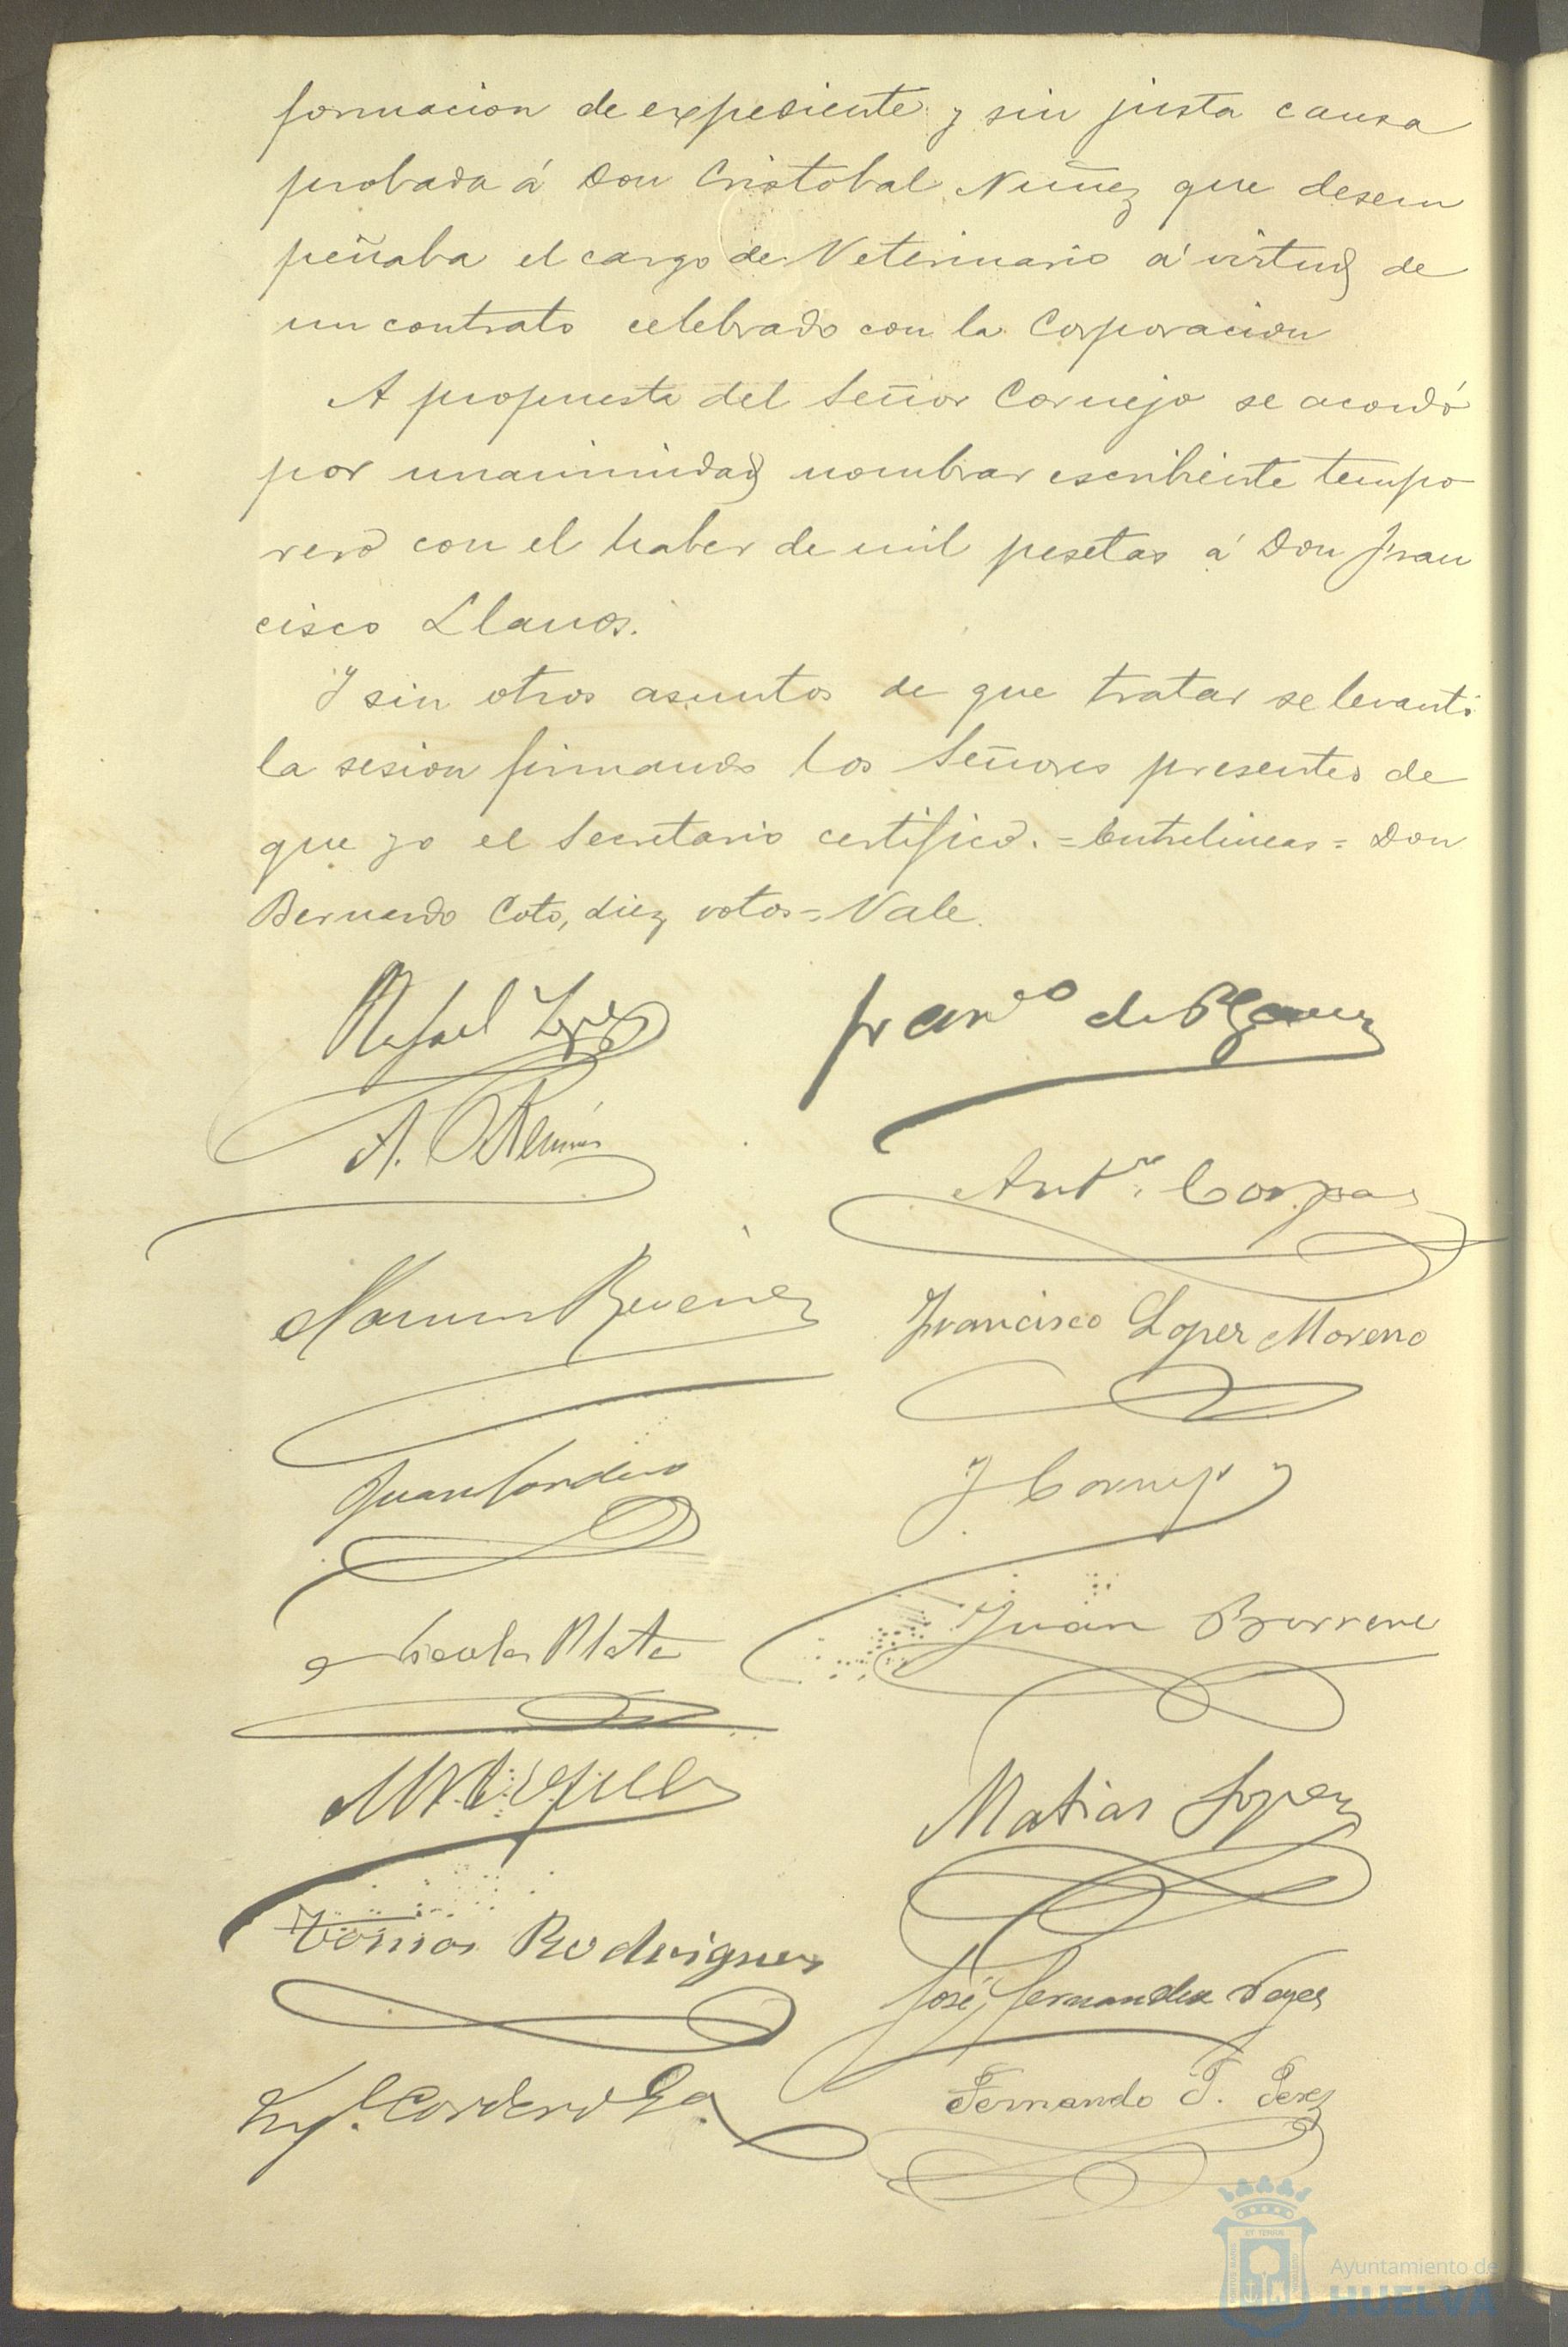 formacion de expediente y sin justa causa
probada á Don Cristobal Nuñez que desem
peñaba el cargo de Veterinario á virtud de
un contrato celebrado con la Corporacion
A propuesta del Señor Cornejo se acordó
por unanimidad nombrar escribiente tempo
rero con el haber de mil pesetas á Don Fran
cisco Llanos.
Y sin otros asuntos de que tratar se levantó
la sesion firmando los Señores presentes de
que yo el Secretario certifico. = Entrelineas = Don
Bernardo Coto, diez votos = Vale.
Rafael Lopez
Franco de P
A.
Antº Corpas
Francisco Lopez Moreno
Juan Cordero
J Cornejo
Plata
Juan Borrero
Matias Lopez
Tomas Rodriguez
José Fernandez
Cordero
Fernando T. Perez
Ayuntamiento de
HUELVA